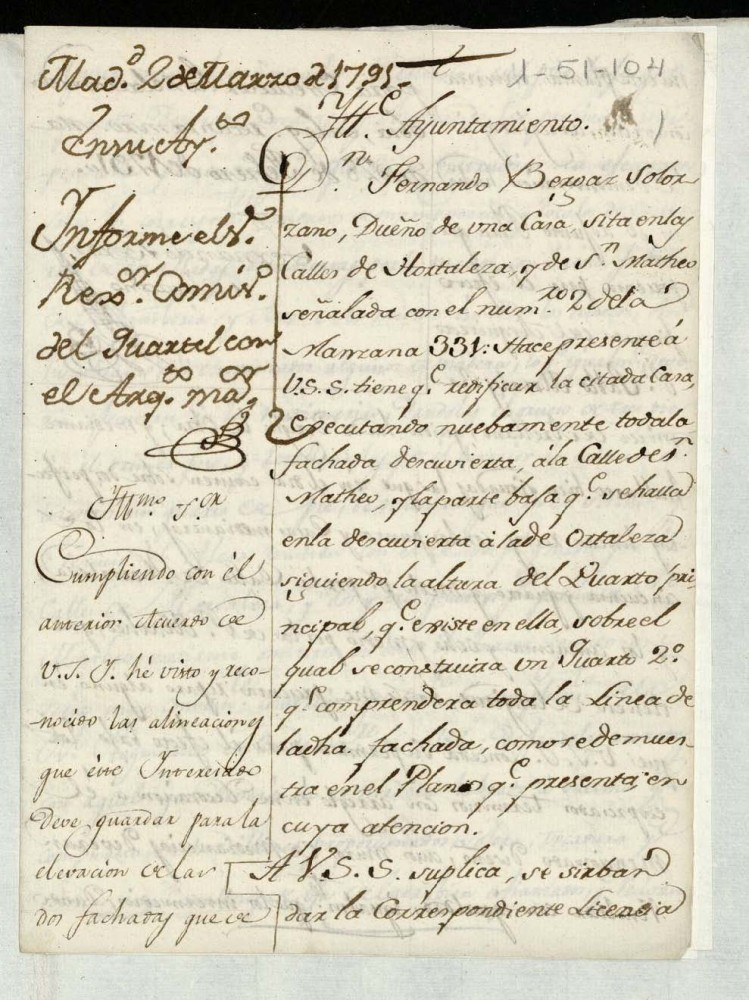 Mad.d 2 de Marzo d 1791
1-51-104
En su Ay.to
Informe el S.r
Rex.or Comis.o
del Quartel con
el Arq.to ma.or
Ill.mo S.or
Cumpliendo con èl
anterior Acuerdo de
V.S.I. hé visto y reco-
nocido las alineaciones
que èste Interesado
Deve guardar para la
elevacion de las
dos fachadas que de
Ill.e Ayuntamiento.
Dn. Fernando Bergaz Solor
zano, Dueño de una Casa, sita en las
Calles de Hortaleza, y de S.n Matheo
señalada con el num.ro 2 de la
Manzana 331: Hace presente á
V.S.S. tiene q.e redificar la citada Casa,
Executando nuebamente toda la
fachada descuvierta, á la Calle de S.n
Matheo, y la parte baja q.e se halla
en la descuvierta á la de Ortaleza
siguiendo la altura del Quarto pri
ncipal, q.e existe en ella, sobre el
qual se construira un Quarto 2.o
q.e comprendera toda la Linea de
la dha fachada, como se demues
tra en el Plano q.e presenta; en
cuya atencion.
A V.S.S. suplica, se sirban
dar la Correspondiente Licensia